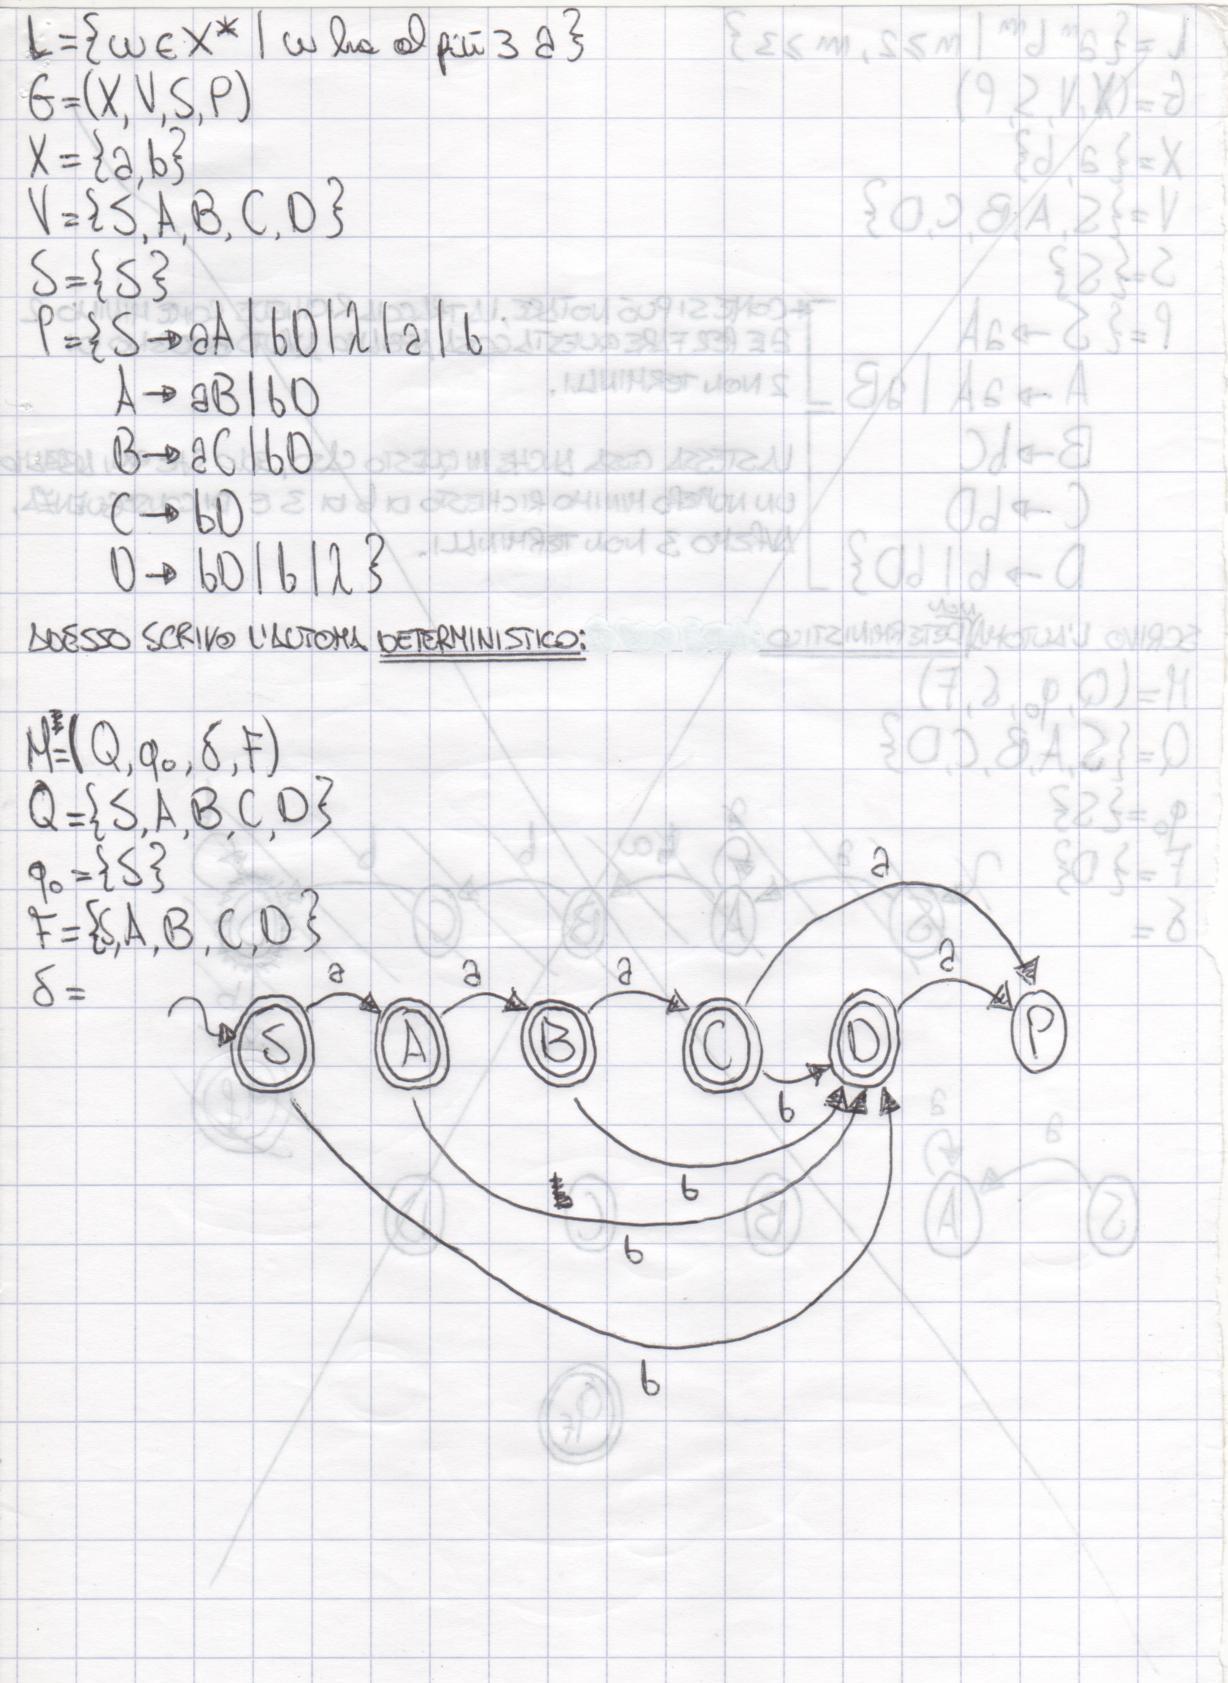 L={w∈X* | w ha al più 3 a}
G=(X,V,S,P)
X={a,b}
V={S,A,B,C,D}
S={S}
P={S→aA|bD|λ|a|b
A→aB|bD
B→aC|bD
C→bD
D→bD|b|λ}
ADESSO SCRIVO L'AUTOMA DETERMINISTICO:
M=(Q,q₀,δ,F)
Q={S,A,B,C,D}
q₀={S}
F={S,A,B,C,D}
δ=
a
a a a a
S A B C D P
b
b
b
b